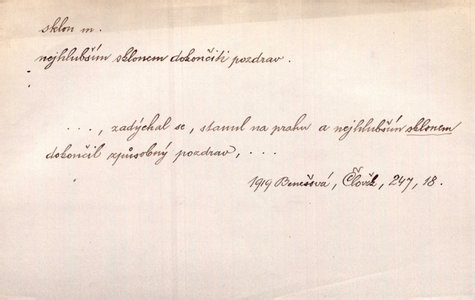 sklon m.
nejhlubším sklonem dokončiti pozdrav.
..., zadýchal se, stanul na prahu a nejhlubším sklonem
dokončil způsobný pozdrav, ...
1919 Benešová, Člověk, 247, 18.